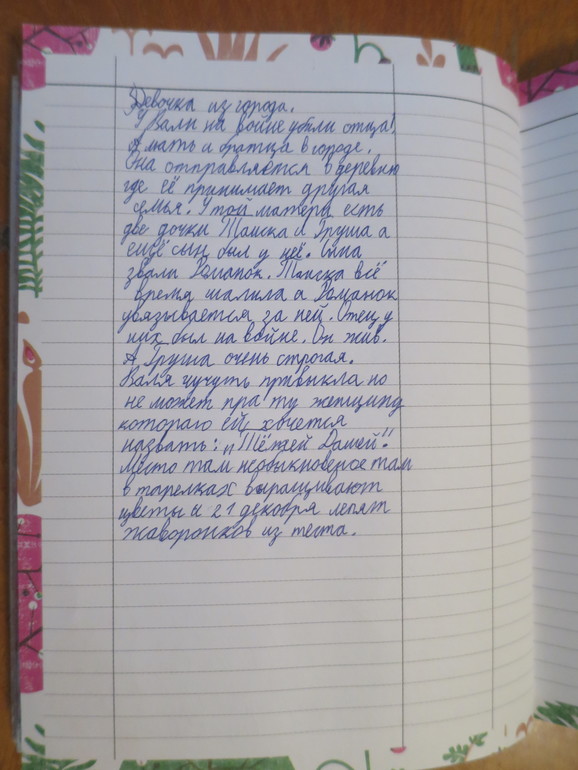 Девочка из города.
У Вали на войне убили отца!
А мать и братца в городе.
Она отправляется в деревню
где её принимает другая
семья. У той матери есть
две дочки Таиска и Груша а
ещё сын был у неё. Сына
звали Романок. Таиска всё
время шалила а Романок
увязывается за ней. Отец у
них был на войне. Он жив.
А Груша очень строгая.
Валя чучуть привыкла но
не может пра ту женщину
котораю ей хочется
назвать: „Тётей Дашей"!
Место там необыкновеное там
в тарелках выращивают
цветы и 21 декобря лепят
жаворонков из теста.